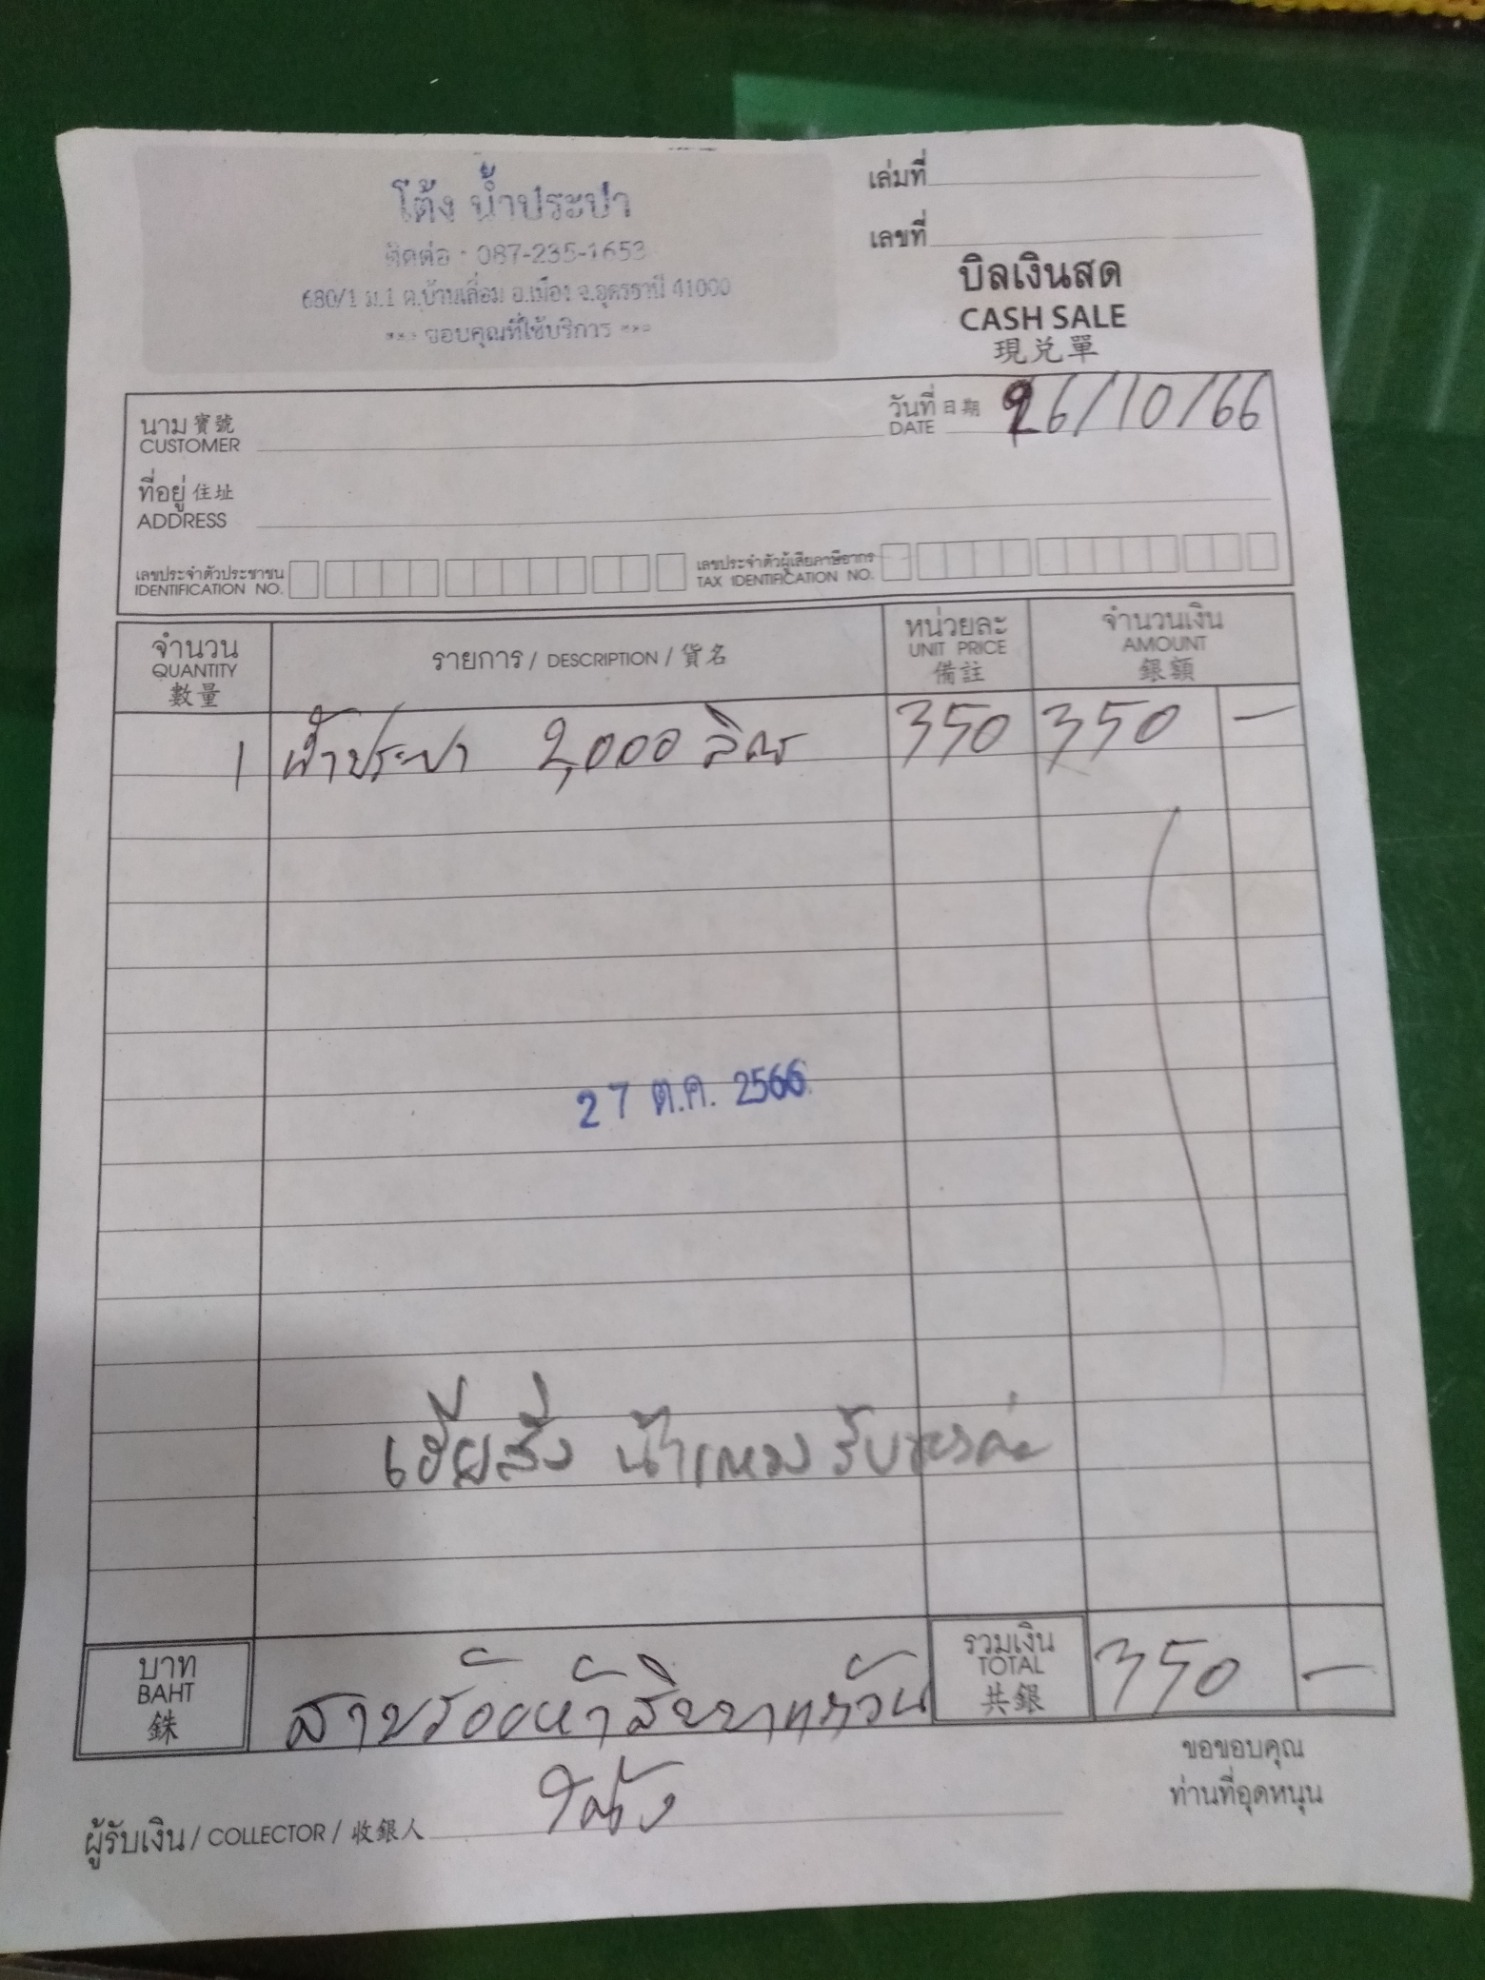 โต้ง น้ำประปา
ติดต่อ : 087-235-1653
680/1 ม.1 ต.บ้านเลื่อม อ.เมือง จ.อุดรธานี 41000
*** ขอบคุณที่ใช้บริการ ***
เล่มที่
เลขที่
บิลเงินสด
CASH SALE
現兌單
นาม 寶號
CUSTOMER
วันที่ 日期 26/10/66
DATE
ที่อยู่ 住址
ADDRESS
เลขประจำตัวประชาชน
IDENTIFICATION NO.
เลขประจำตัวผู้เสียภาษีอากร
TAX IDENTIFICATION NO.
จำนวน
QUANTITY
數量
รายการ / DESCRIPTION / 貨名
หน่วยละ
UNIT PRICE
備註
จำนวนเงิน
AMOUNT
銀額
1 น้ำประปา 2,000 ลิตร 350 350 -
27 ต.ค. 2566
เฮียสั่ง น้าแหมว รับของค่ะ
บาท
BAHT
銖
สามร้อยห้าสิบบาทถ้วน
รวมเงิน
TOTAL
共銀
350 -
ขอขอบคุณ
ท่านที่อุดหนุน
ผู้รับเงิน / COLLECTOR / 收銀人 โต้ง